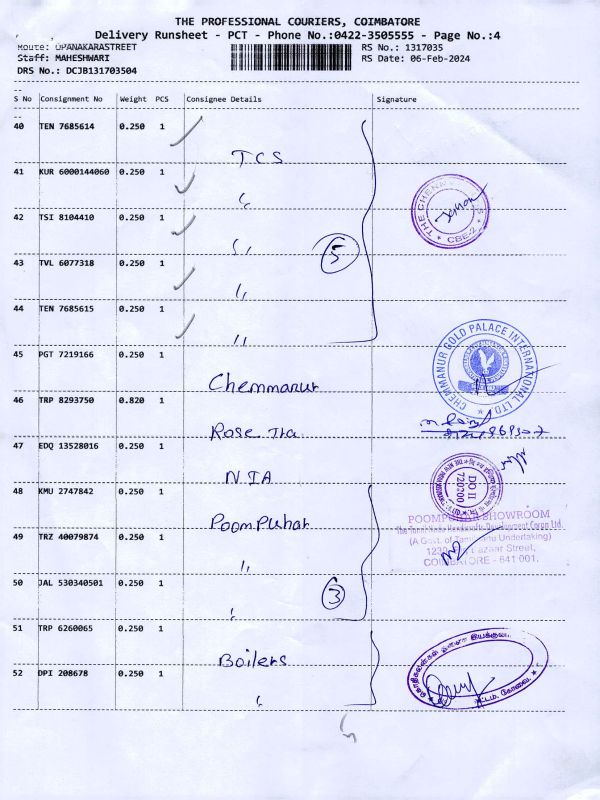 THE PROFESSIONAL COURIERS, COIMBATORE
Delivery Runsheet - PCT - Phone No.:0422-3505555 - Page No.:4
Route: OPANAKARASTREET
RS No.: 1317035
Staff: MAHESHWARI
RS Date: 06-Feb-2024
DRS No.: DCJB131703504
S No Consignment No Weight PCS Consignee Details Signature
40 TEN 7685614 0.250 1
TCS
41 KUR 6000144060 0.250 1
THE CHENN
CBE-2
42 TSI 8104410 0.250 1
5
43 TVL 6077318 0.250 1
44 TEN 7685615 0.250 1
45 PGT 7219166 0.250 1
Chemmanur
CHEMMANUR GOLD PALACE INTERNATIONAL LTD
46 TRP 8293750 0.820 1
Rose Tra
47 EDQ 13528016 0.250 1
NIA
DO II
720700
48 KMU 2747842 0.250 1
Poompuhar
POOMPUHAR SHOWROOM
The Tamil Nadu Handicrafts Development Corpn Ltd.
(A Govt. of Tamil Nadu Undertaking)
49 TRZ 40079874 0.250 1
azaar Street,
COIMBATORE - 641 001.
50 JAL 530340501 0.250 1
3
51 TRP 6260065 0.250 1
Boilers
52 DPI 208678 0.250 1